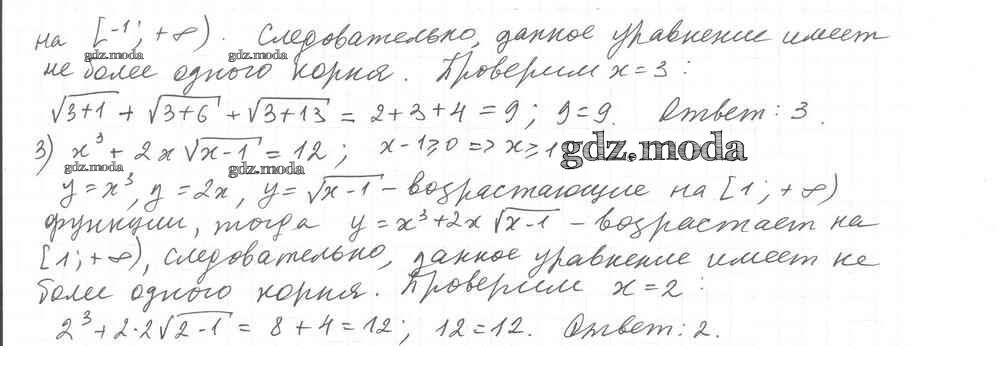 на [-1; +∞). Следовательно, данное уравнение имеет
gdz.moda gdz.moda
не более одного корня. Проверим x=3:
√(3+1) + √(3+6) + √(3+13) = 2+3+4 = 9; 9=9. Ответ: 3.
3) x³ + 2x√(x-1) = 12; x-1⩾0 => x⩾1
gdz.moda
gdz.moda gdz.moda
y=x³, y=2x, y=√(x-1) – возрастающие на [1; +∞)
функции, тогда y=x³+2x√(x-1) – возрастает на
[1; +∞), следовательно, данное уравнение имеет не
более одного корня. Проверим x=2:
2³+2·2√(2-1) = 8+4=12; 12=12. Ответ: 2.